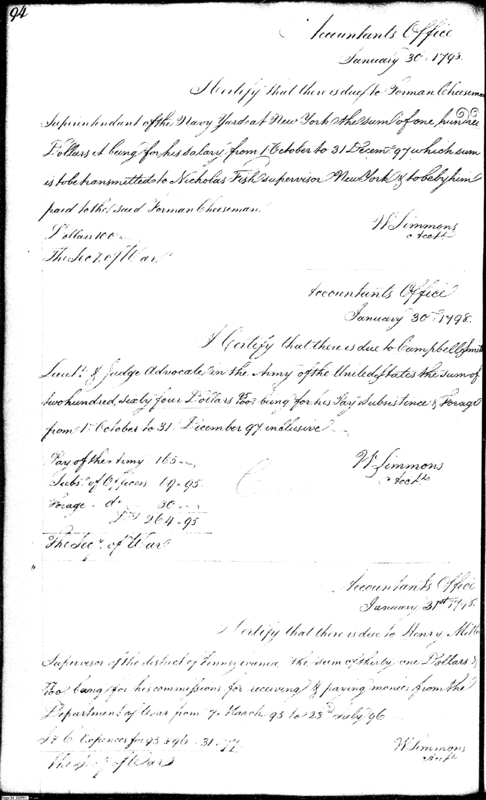 94
Accountants Office
January 30. 1798.
I Certify that there is due to Forman Cheeseman
Superintendant of the Navy Yard at New York the sum of one hundred
Dollars it being for his salary from 1 October to 31 Decemr 97 which sum
is to be transmitted to Nicholas Fish supervisor New York & to be by him
paid to the said Forman Cheeseman.
Dollars 100
W Simmons
Acctt
The Secy. of War
Accountants Office
January 30th 1798.
I Certify that there is due to Campbell Smith
Lieut. & Judge Advocate in the Army of the United States the sum of
two hundred sixty four Dollars 95/100 being for his Pay Subsistence & Forage
from 1st October to 31 December 97 inclusive
Pay of the Army 165
Subs. of Officers 69.95
Forage do 30
264.95
W Simmons
Acctt
The Secy. of War
Accountants Office
January 31st 1798.
I Certify that there is due to Henry Miller
Supervisor of the district of Pennsylvania the sum of thirty one Dollars &
77/100 being for his commissions for receiving & paying monies from the
Department of War from 7 March 95 to 23d July 96
Expences for 95 & 96 31.77
W Simmons
Acctt
The Secy of War